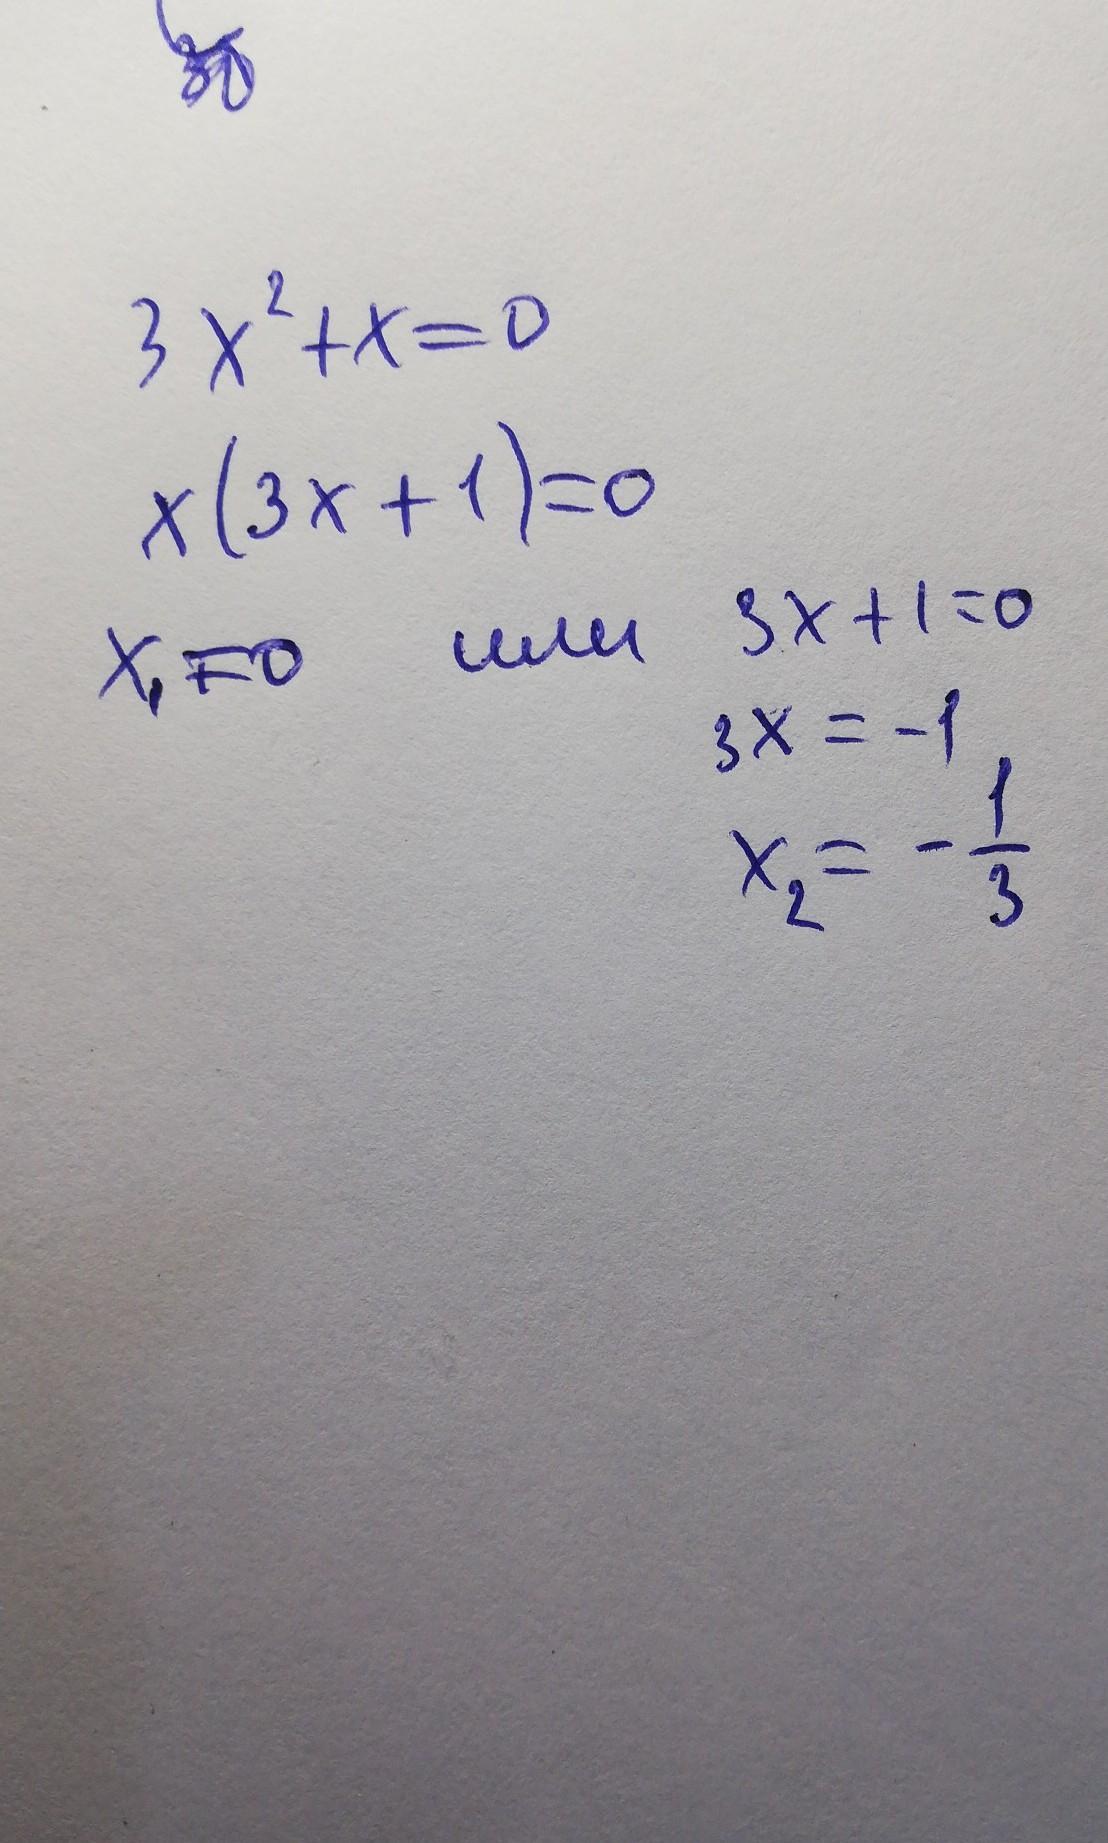 3x²+x=0
x(3x+1)=0
x₁=0 или 3x+1=0
3x=-1
x₂=-1/3